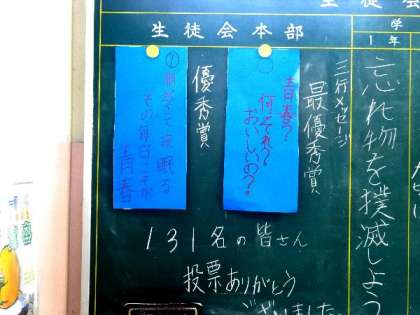 生徒会本部
生徒
学
1年
忘れ物を撲滅しよう
三行メッセージ
最優秀賞
青春？
何それ？
おいしいの？
優秀賞
① 朝起きて夜眠る
その毎日こそが
青春
131名の皆さん
投票ありがとう
ございました